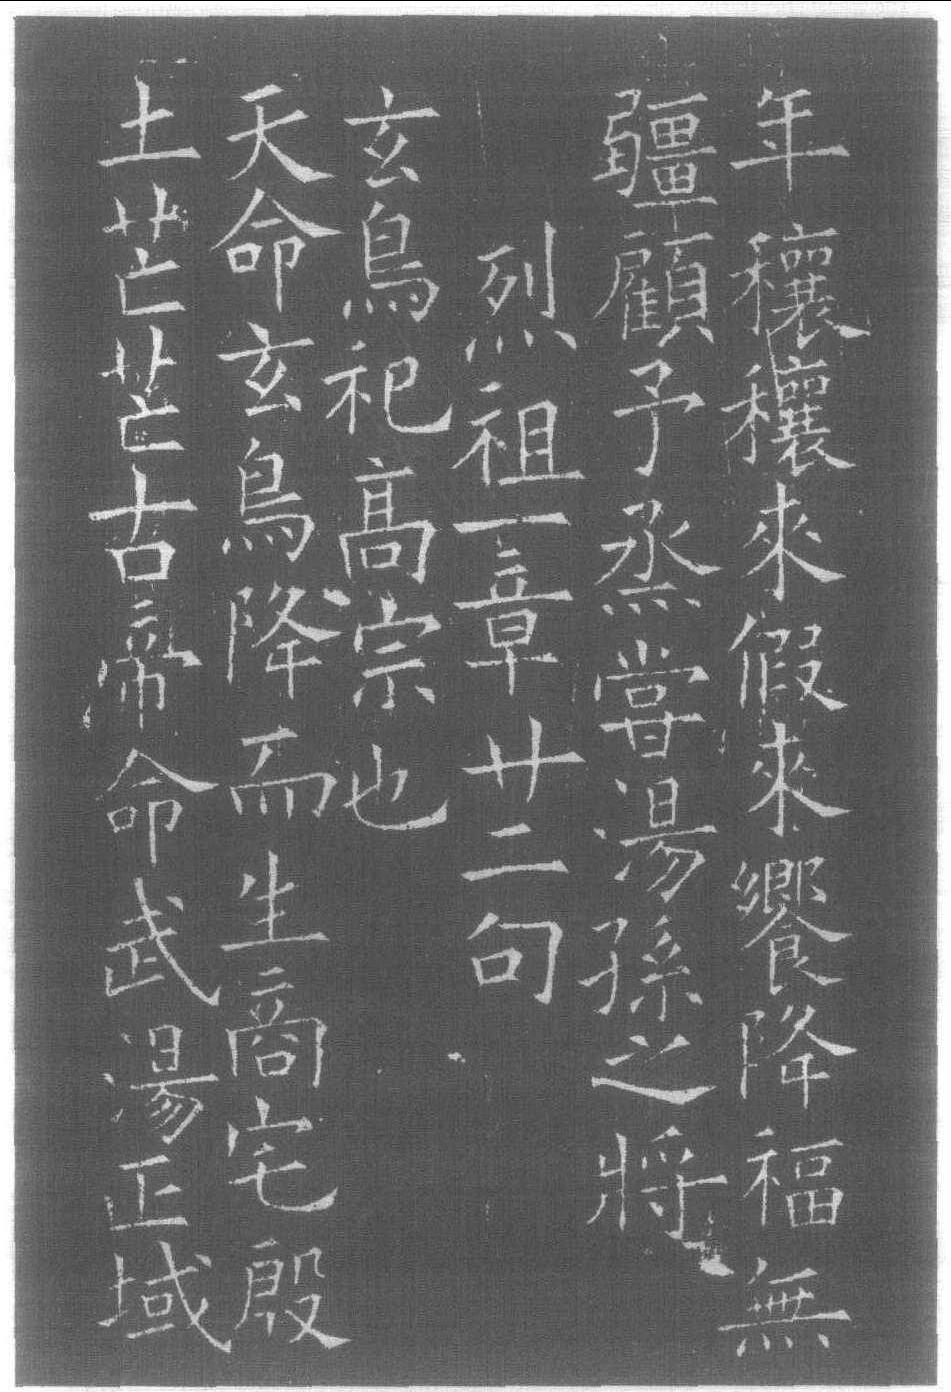 年穰穰來假來饗降福無
疆顧予烝甞湯孫之將
烈祖一章廿二句
玄鳥祀高宗也
天命玄鳥降而生商宅殷
土芒芒古帝命武湯正域